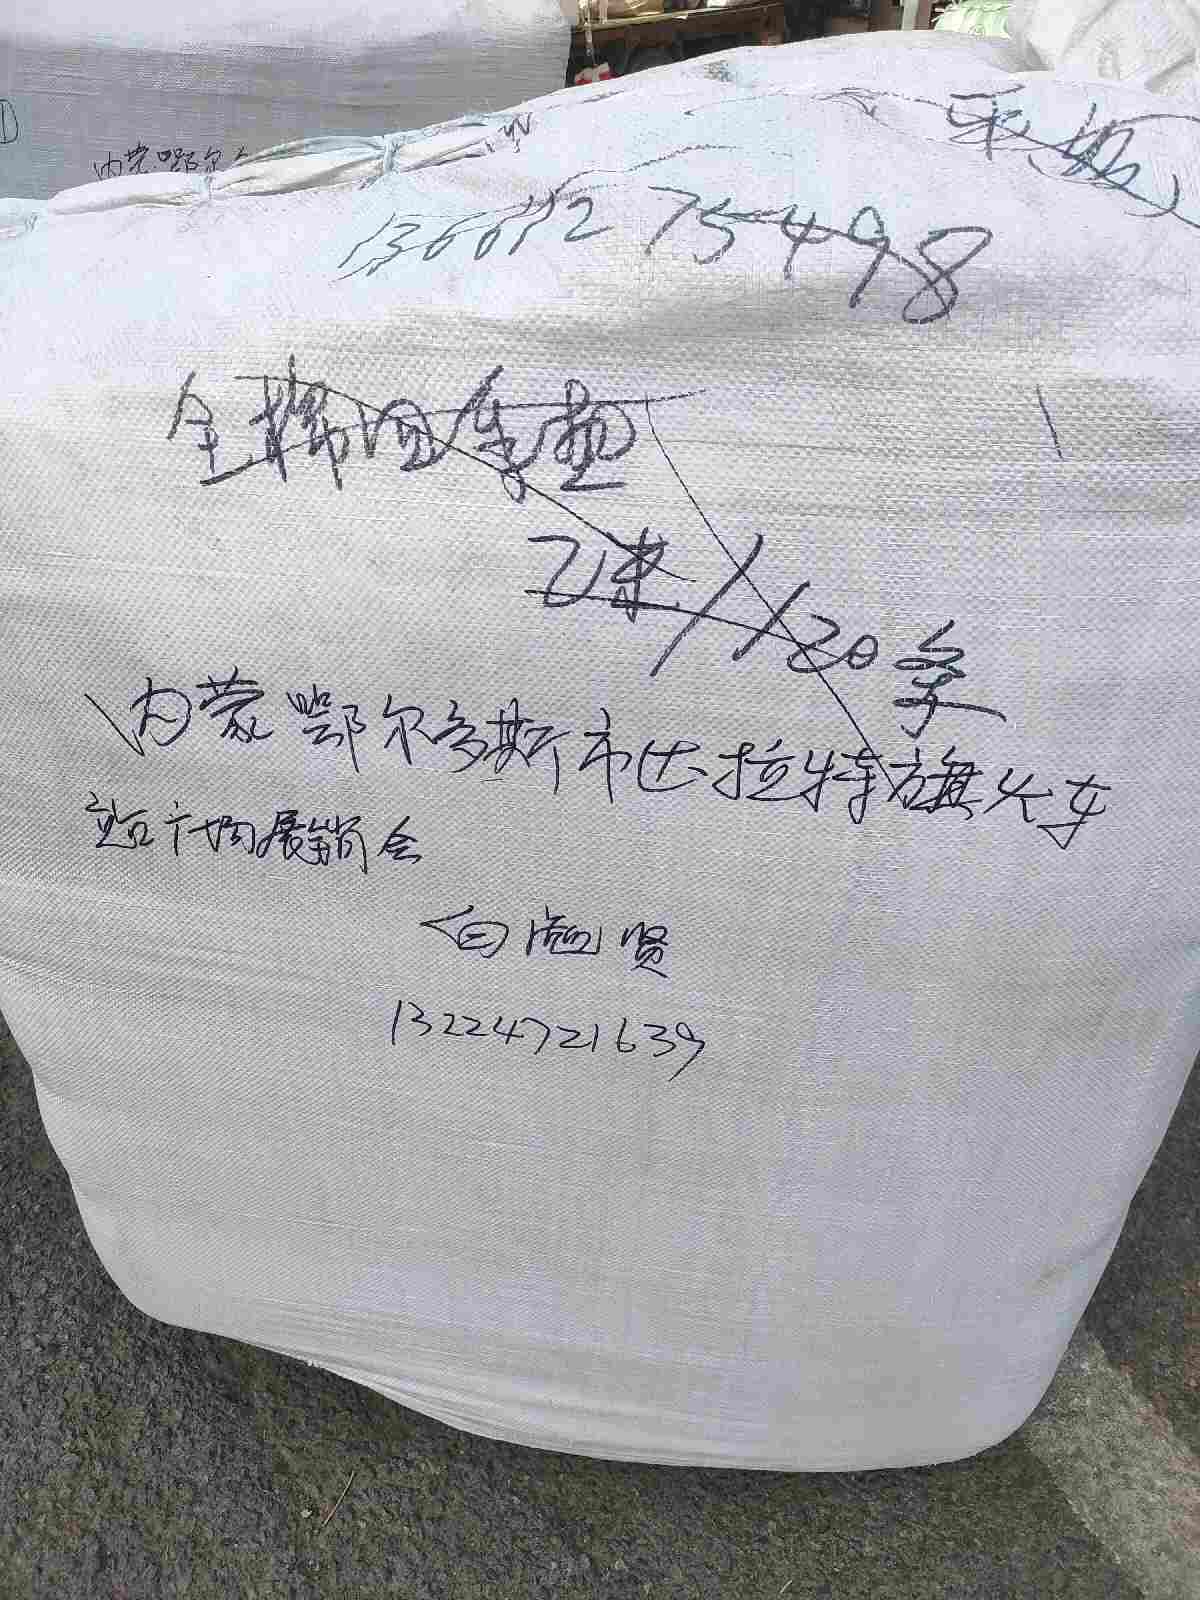 内蒙鄂尔
75498
全棉四车垫
2米/120条
内蒙鄂尔多斯市达拉特旗火车
站广场展销会
白 贤
13224721639